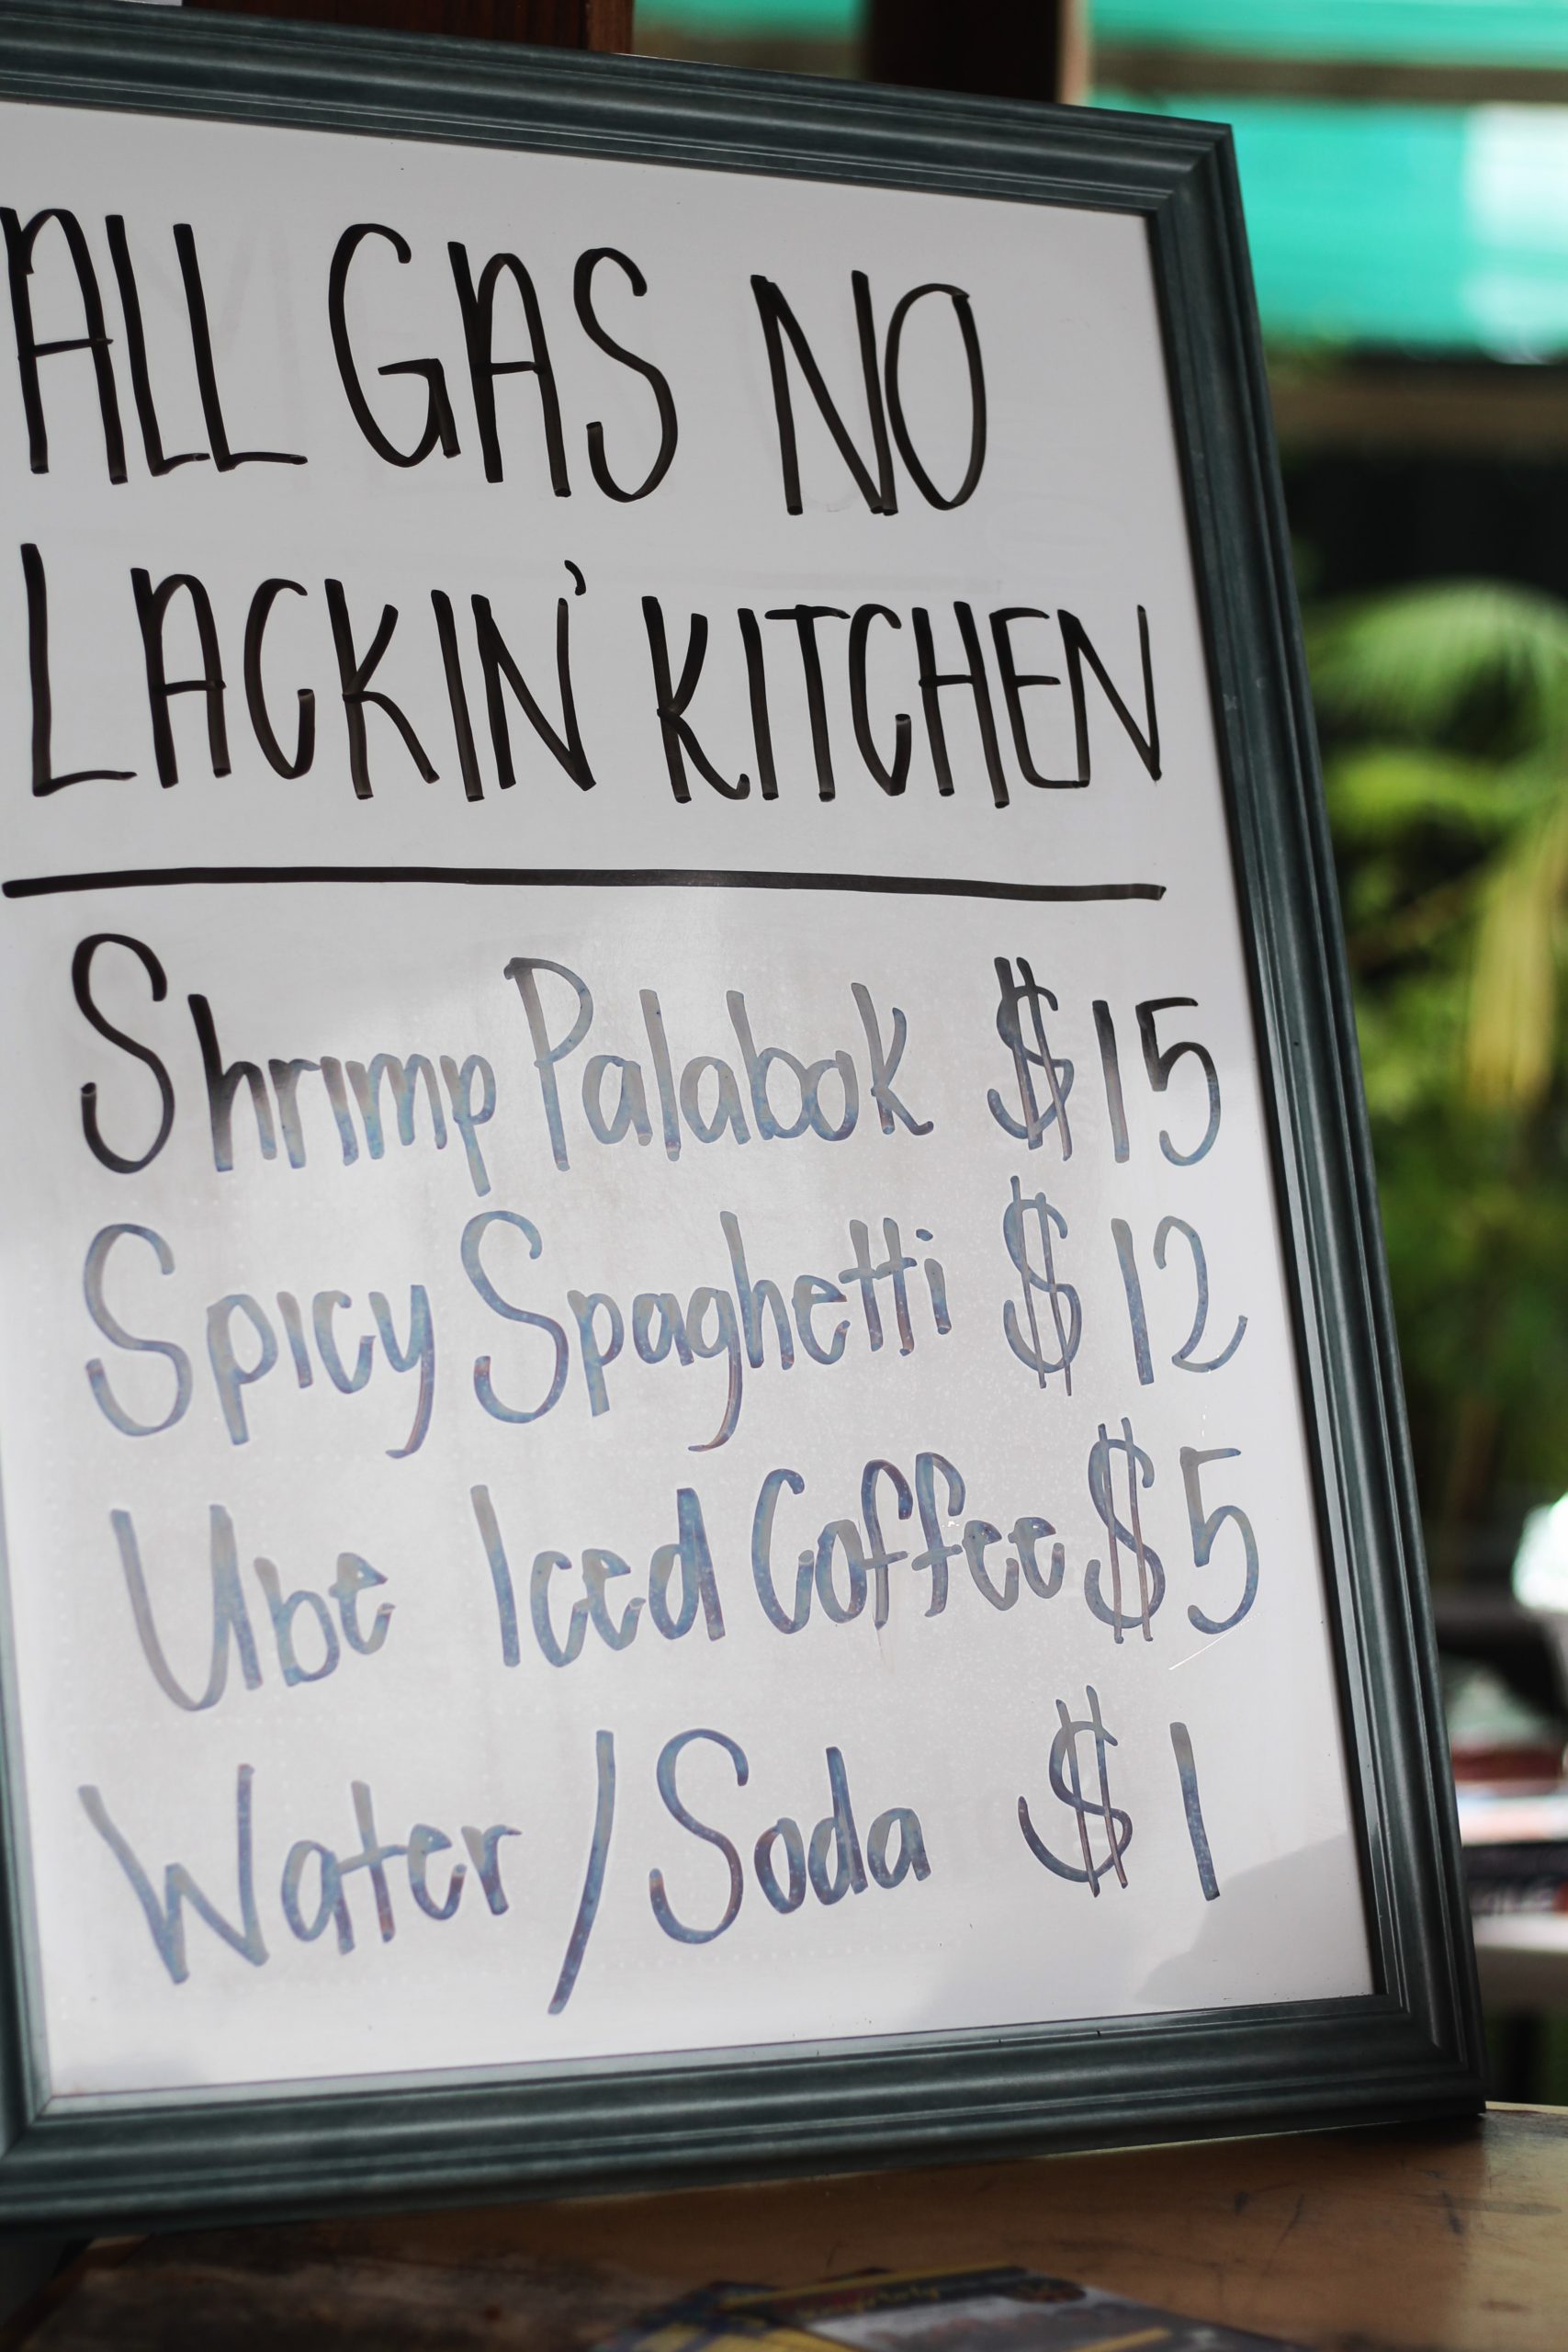 ALL GAS NO
LACKIN' KITCHEN
Shrimp Palabok $15
Spicy Spaghetti $12
Ube Iced Coffee $5
Water / Soda $1